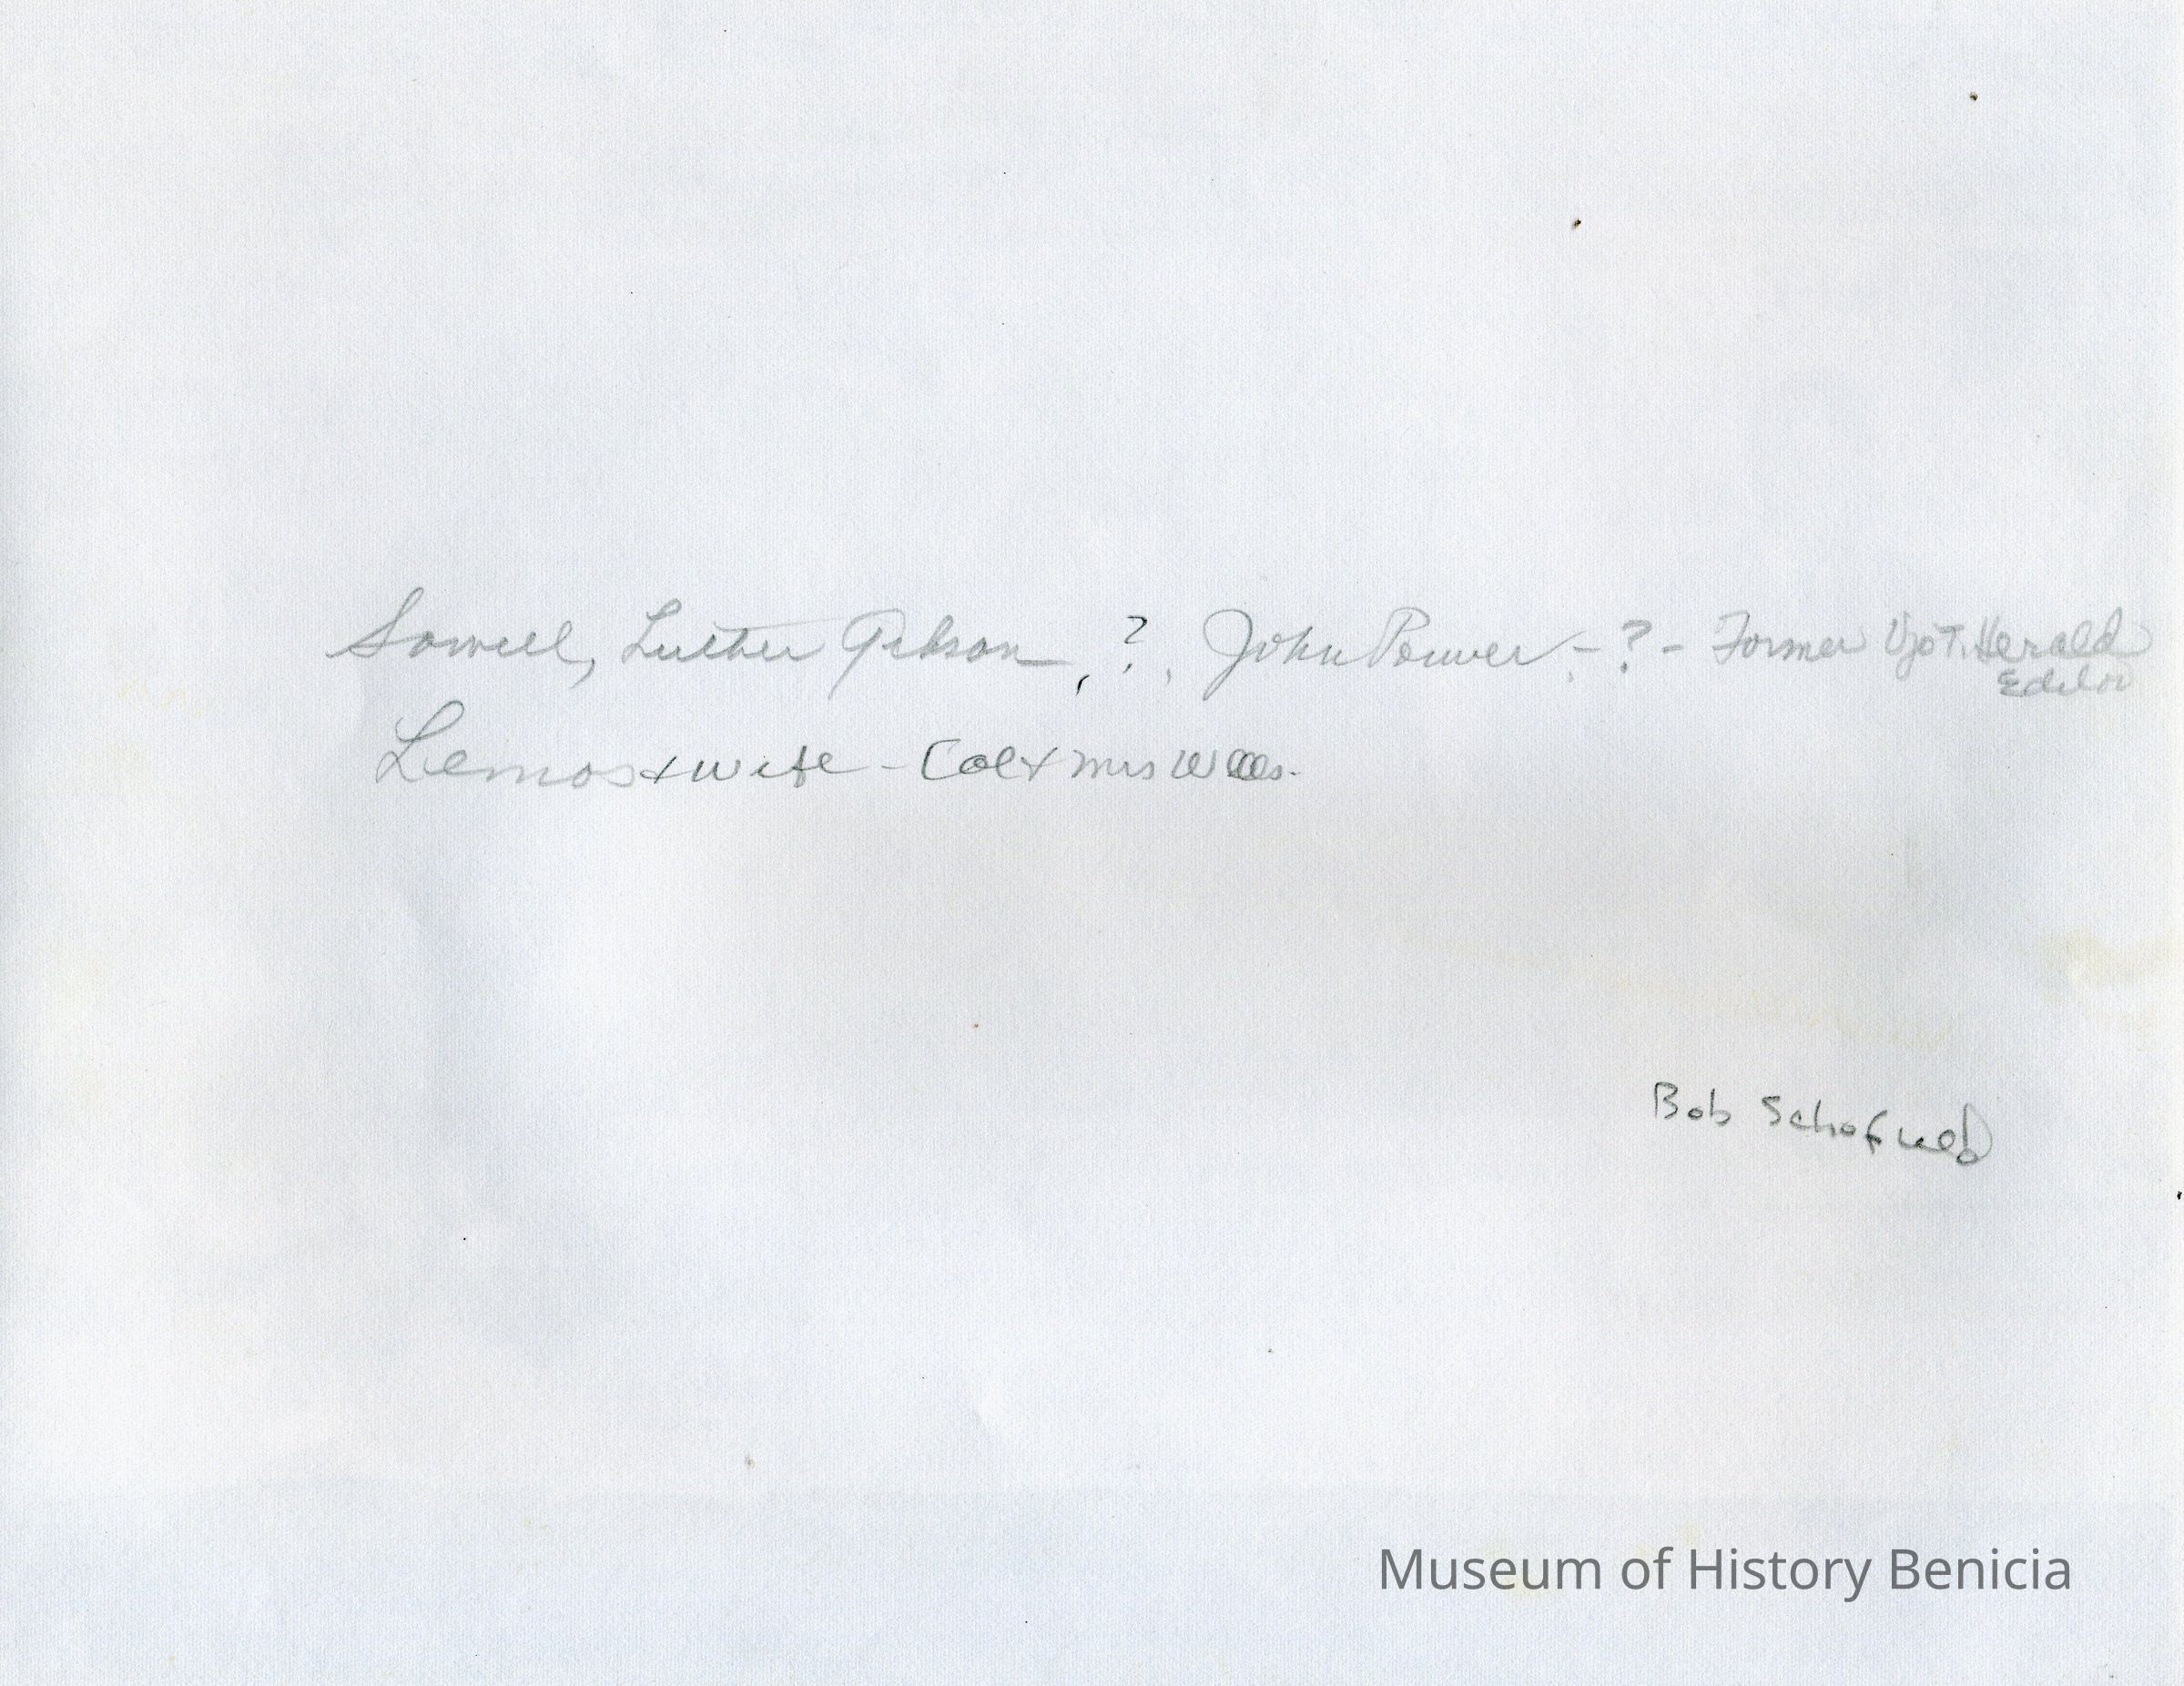 Sowell, Luther Gibson, ?, John Power - ? - Former Vjo T. Herald
Editor
Lemos + wife - Col + Mrs Wells.
Bob Schofield
Museum of History Benicia